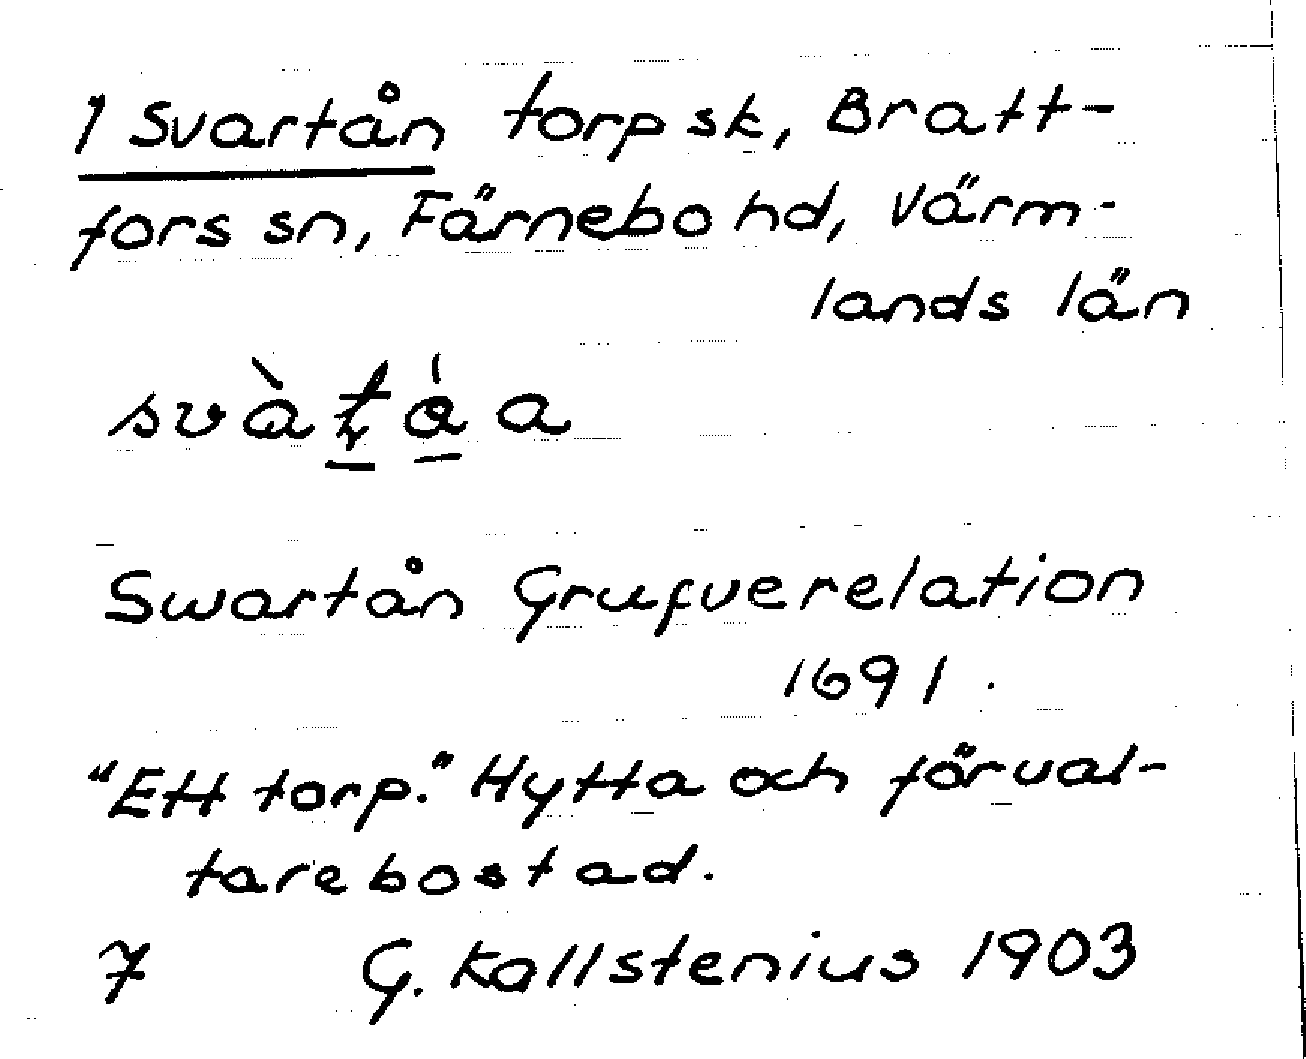 1 Svartån torp sk, Bratt-
fors sn, Färnebo hd, Värm-
lands län
Swartån Grufverelation
1691.
"Ett torp." Hytta och förval-
tarebostad.
7 G. Kallstenius 1903